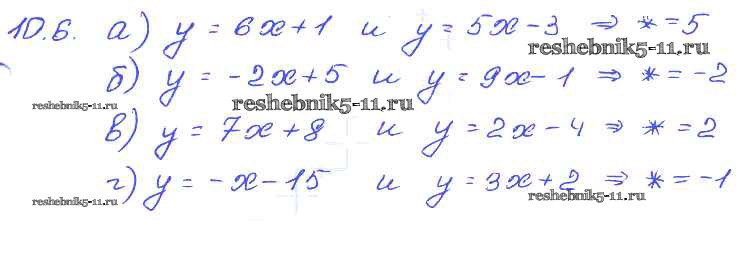 10.6. а) y = 6x+1 и y = 5x-3 ⇒ * = 5
reshebnik5-11.ru
б) y = -2x+5 и y = 9x-1 ⇒ * = -2
reshebnik5-11.ru reshebnik5-11.ru
в) y = 7x+8 и y = 2x-4 ⇒ * = 2
г) y = -x-15 и y = 3x+2 ⇒ * = -1
reshebnik5-11.ru reshebnik5-11.ru